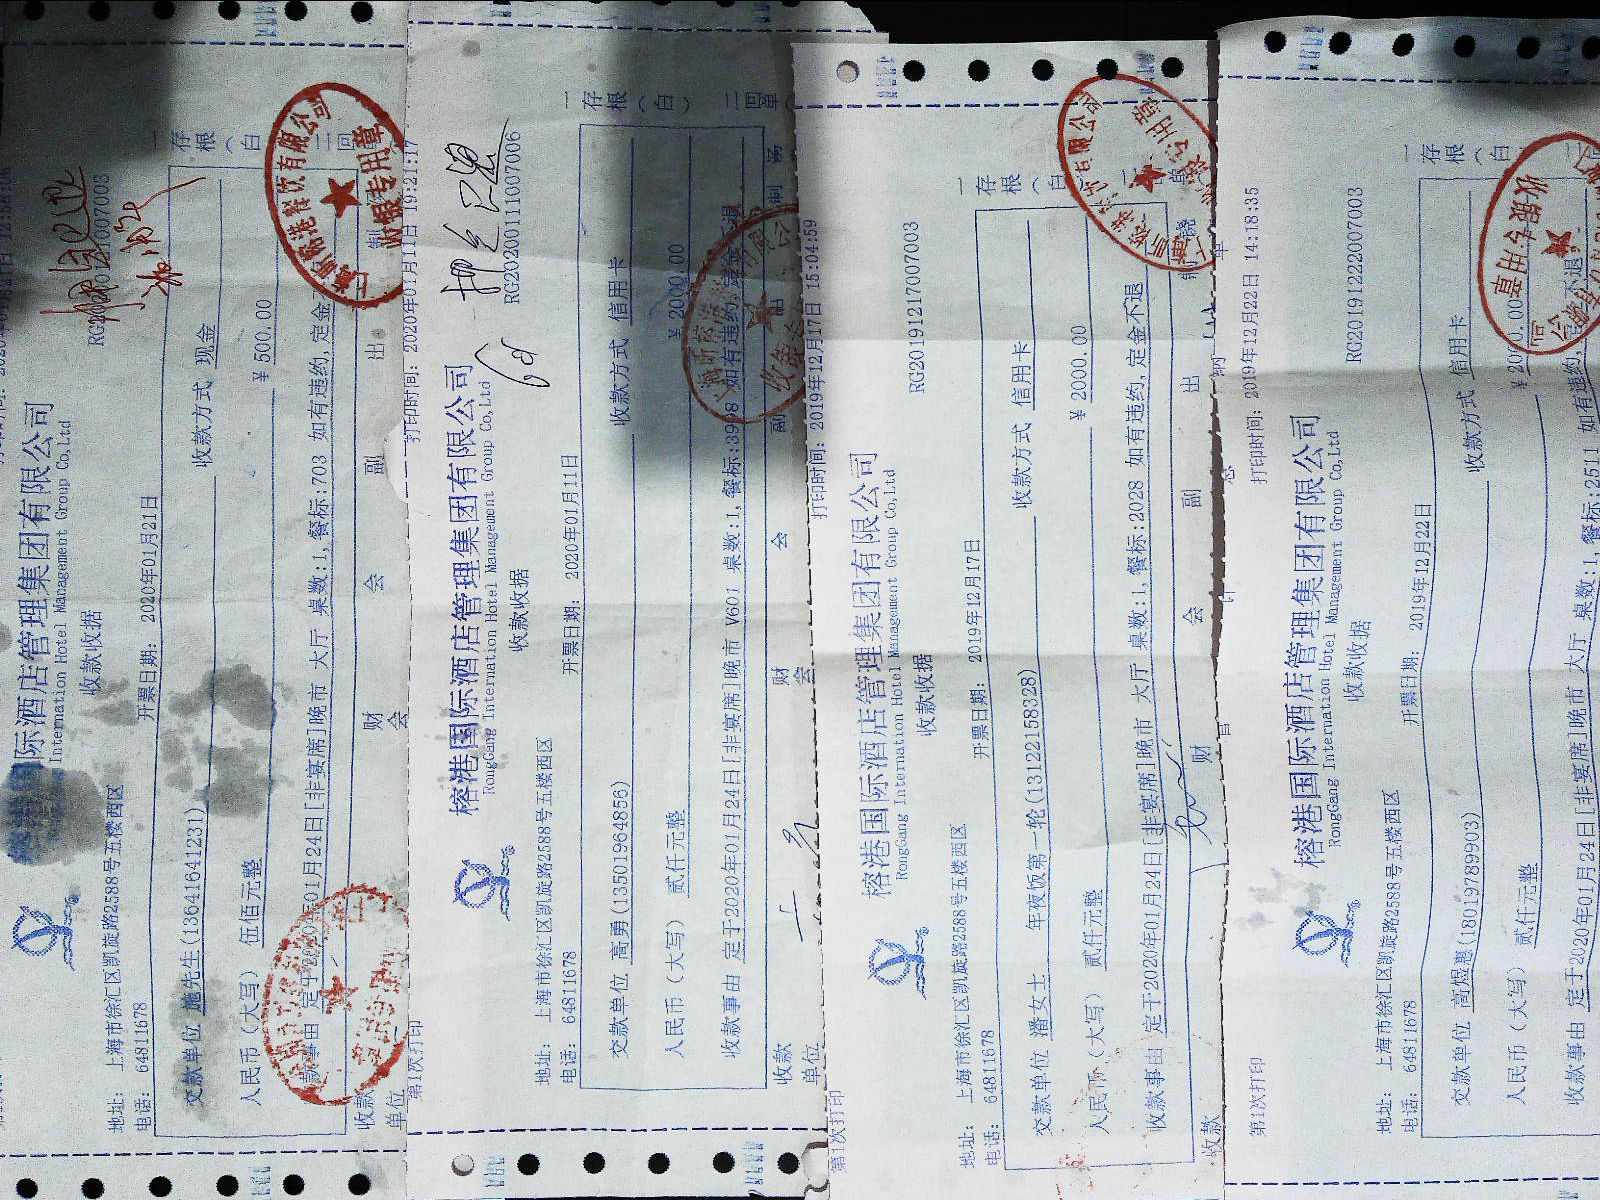 榕港国际酒店管理集团有限公司
International Hotel Management Group Co,Ltd
收款收据
RG20200121007003
地址: 上海市徐汇区凯旋路2588号五楼西区
电话: 64811678
开票日期: 2020年01月21日
一存根(白) 二回单
交款单位 施先生(13641641231) 收款方式 现金
人民币(大写) 伍佰元整 ¥500.00
款事由 定于2020年01月24日[非宴席]晚市 大厅 桌数:1,餐标:703 如有违约,定金不
收款单位 财会 会 副 出 制
上海昕榕港餐饮有限公司
收银专用章
第1次打印
打印时间: 2020年01月11日 19:21:17
榕港国际酒店管理集团有限公司
RongGang International Hotel Management Group Co,Ltd
收款收据
RG20200111007006
地址: 上海市徐汇区凯旋路2588号五楼西区
电话: 64811678
开票日期: 2020年01月11日
一存根(白) 二回单
交款单位 高勇(13501964856) 收款方式 信用卡
人民币(大写) 贰仟元整 ¥2000.00
收款事由 定于2020年01月24日[非宴席]晚市 V601 桌数:1,餐标:3998 如有违约,定金不退
收款单位 财会 会 副
第1次打印
打印时间: 2019年12月17日 15:04:59
榕港国际酒店管理集团有限公司
RongGang International Hotel Management Group Co,Ltd
收款收据
RG20191217007003
地址: 上海市徐汇区凯旋路2588号五楼西区
电话: 64811678
开票日期: 2019年12月17日
一存根(白)
交款单位 潘女士 年夜饭第一轮(13122158328) 收款方式 信用卡
人民币(大写) 贰仟元整 ¥2000.00
收款事由 定于2020年01月24日[非宴席]晚市 大厅 桌数:1,餐标:2028 如有违约,定金不退
收款 财 会 副 出
第1次打印
打印时间: 2019年12月22日 14:18:35
榕港国际酒店管理集团有限公司
RongGang International Hotel Management Group Co,Ltd
收款收据
RG20191222007003
地址: 上海市徐汇区凯旋路2588号五楼西区
电话: 64811678
开票日期: 2019年12月22日
一存根(白)
交款单位 高煜惠(18019789903) 收款方式 信用卡
人民币(大写) 贰仟元整
收款事由 定于2020年01月24日[非宴席]晚市 大厅 桌数:1,餐标:2511 如有违约,
收银专用章